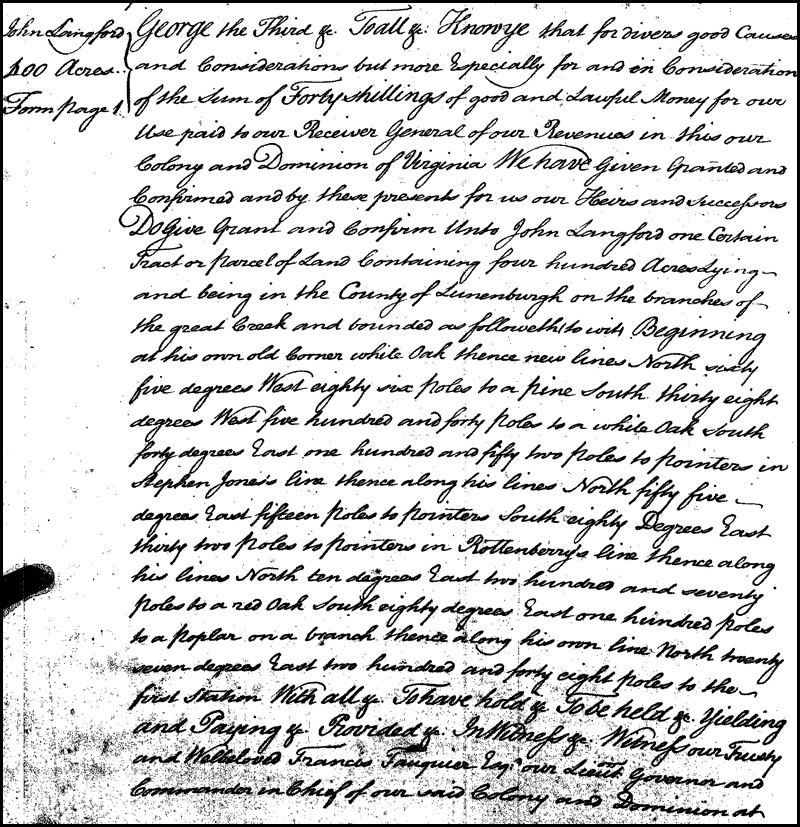 John Langford
400 Acres.
Form page 1
George the Third &c. To all &c. Know ye that for divers good Causes
and Considerations but more Especially for and in Consideration
of the Sum of Forty shillings of good and Lawful Money for our
Use paid to our Receiver General of our Revenues in this our
Colony and Dominion of Virginia We have Given Granted and
Confirmed and by these presents for us our Heirs and Successors
Do Give Grant and Confirm Unto John Langford one Certain
Tract or parcel of Land Containing four hundred Acres Lying
and being in the County of Lunenburgh on the branches of
the great Creek and bounded as followeth (to wit) Beginning
at his own old Corner white Oak thence new lines North sixty
five degrees West eighty six poles to a pine South thirty eight
degrees West five hundred and forty poles to a white Oak South
forty degrees East one hundred and fifty two poles to pointers in
Stephen Jones's line thence along his lines North fifty five
degrees East fifteen poles to pointers South eighty Degrees East
thirty two poles to pointers in Rottenberry's line thence along
his lines North ten degrees East two hundred and seventy
poles to a red Oak South eighty degrees East one hundred poles
to a poplar on a branch thence along his own line North twenty
seven degrees East two hundred and forty eight poles to the
first Station With all &c. To have hold &c. To be held &c. Yielding
and Paying &c. Provided &c. In Witness &c. Witness our Trusty
and Welbeloved Francis Fauquier Esqr. our Lieut. Governor and
Commander in Chief of our said Colony and Dominion at